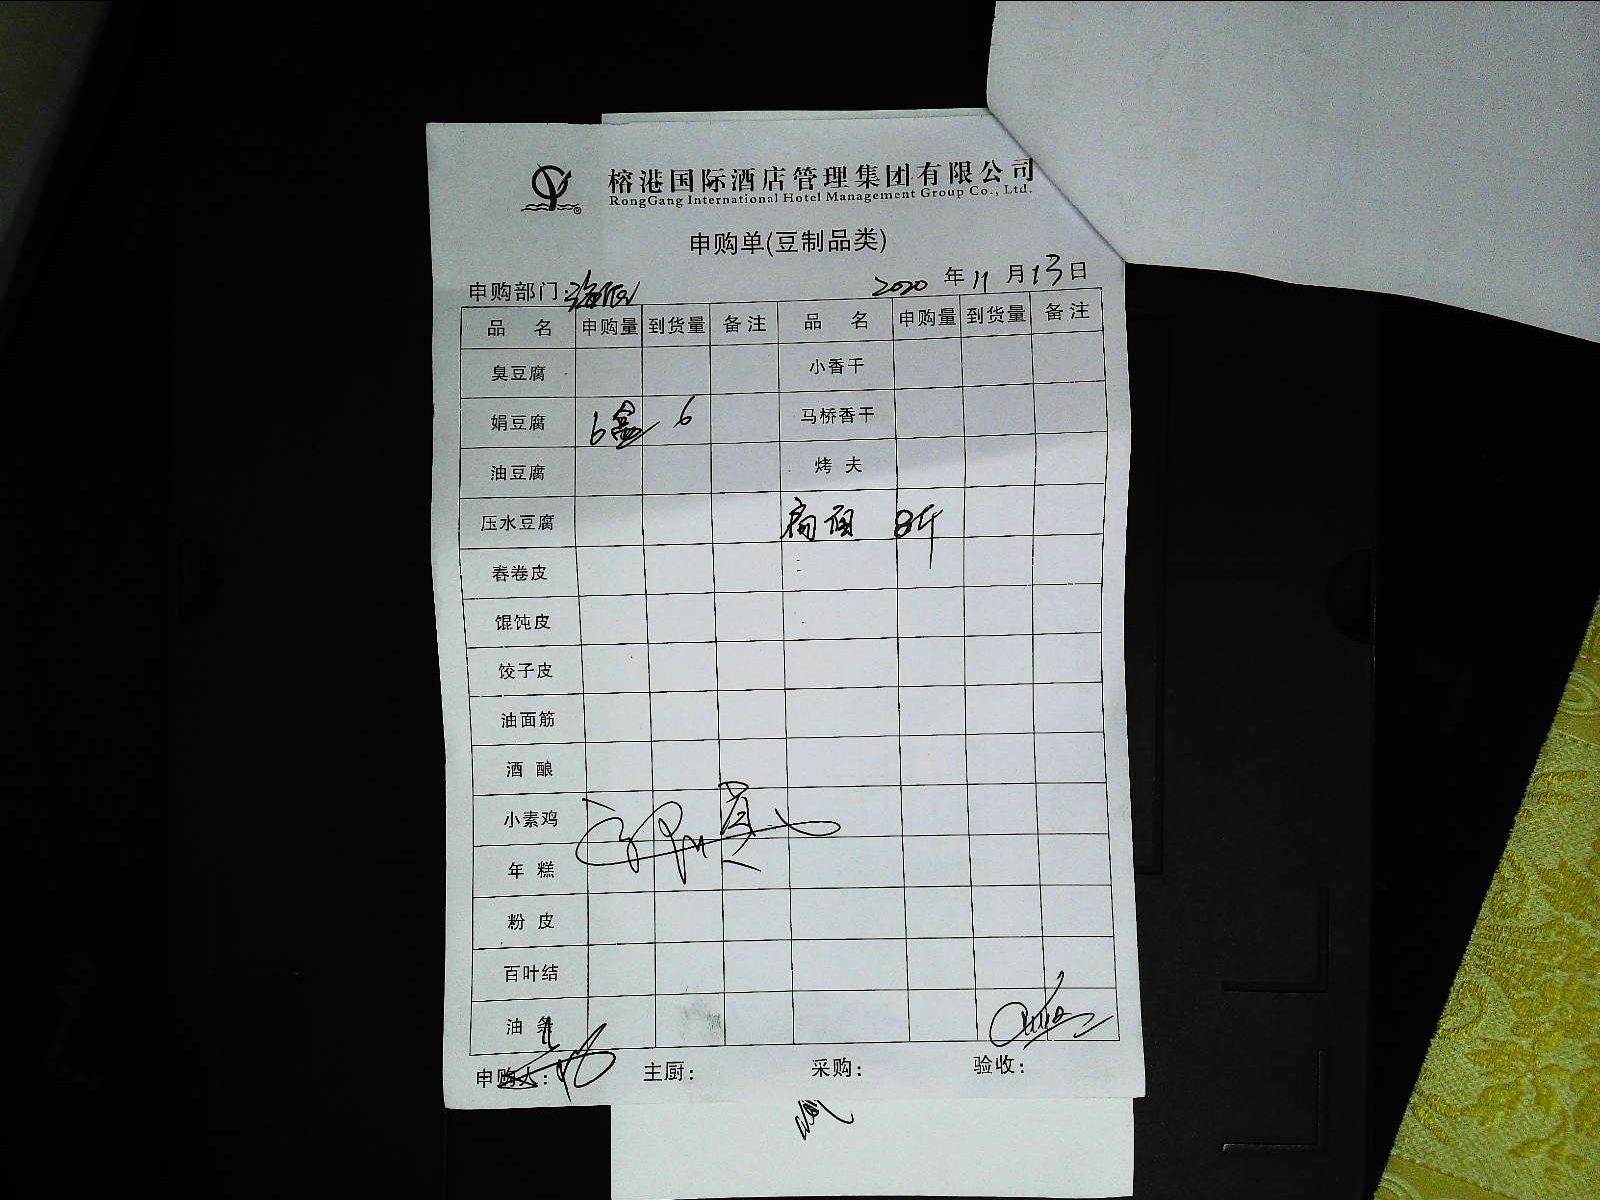 榕港国际酒店管理集团有限公司
RongGang International Hotel Management Group Co., Ltd.
申购单(豆制品类)
申购部门: 2020 年 11 月 13 日
品 名 申购量 到货量 备注 品 名 申购量 到货量 备注
臭豆腐 小香干
娟豆腐 6盒 6 马桥香干
油豆腐 烤 夫
压水豆腐 8斤
春卷皮
馄饨皮
饺子皮
油面筋
酒 酿
小素鸡
年 糕
粉 皮
百叶结
油 条
申购人: 主厨: 采购: 验收: